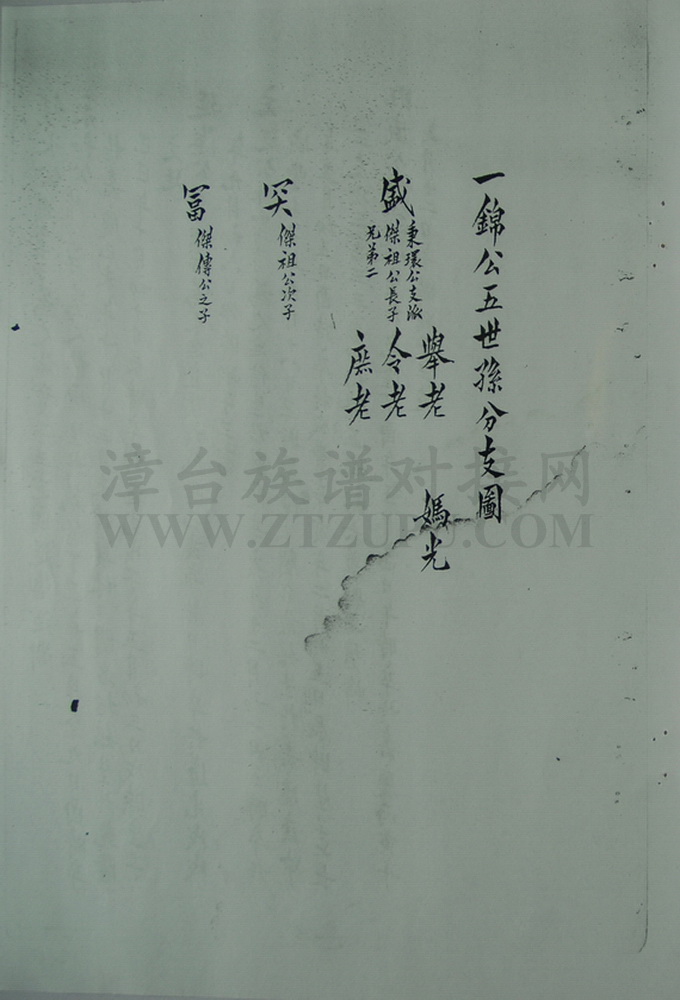 一錦公五世孫分支圖
盛
秉環公支派
傑祖公長子
兄弟二
舉老
令老
庶老
媽光
傑祖公次子
冨
傑傳公之子
漳台族谱对接网
WWW.ZTZUPU.COM